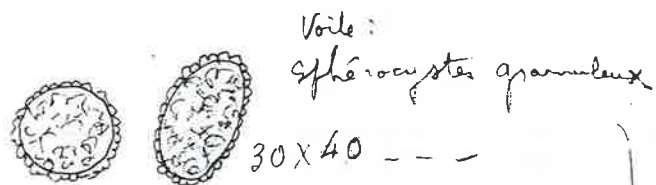 Voile :
Sphérocystes granuleux
30 X 40 - - -